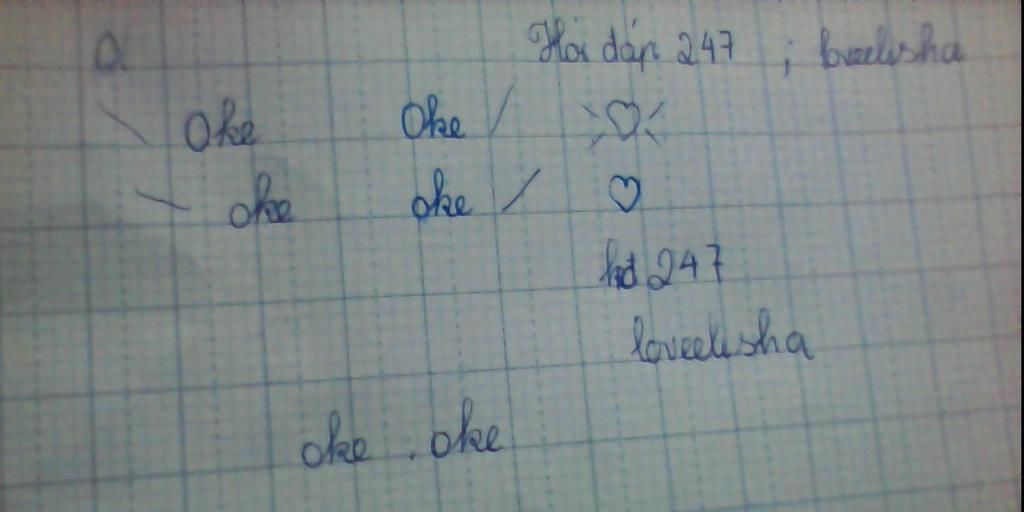 O. Hỏi đáp 247 ; loveelisha
\ Oke Oke / ♡
\ oke oke / ♡
hđ 247
loveelisha
oke . oke